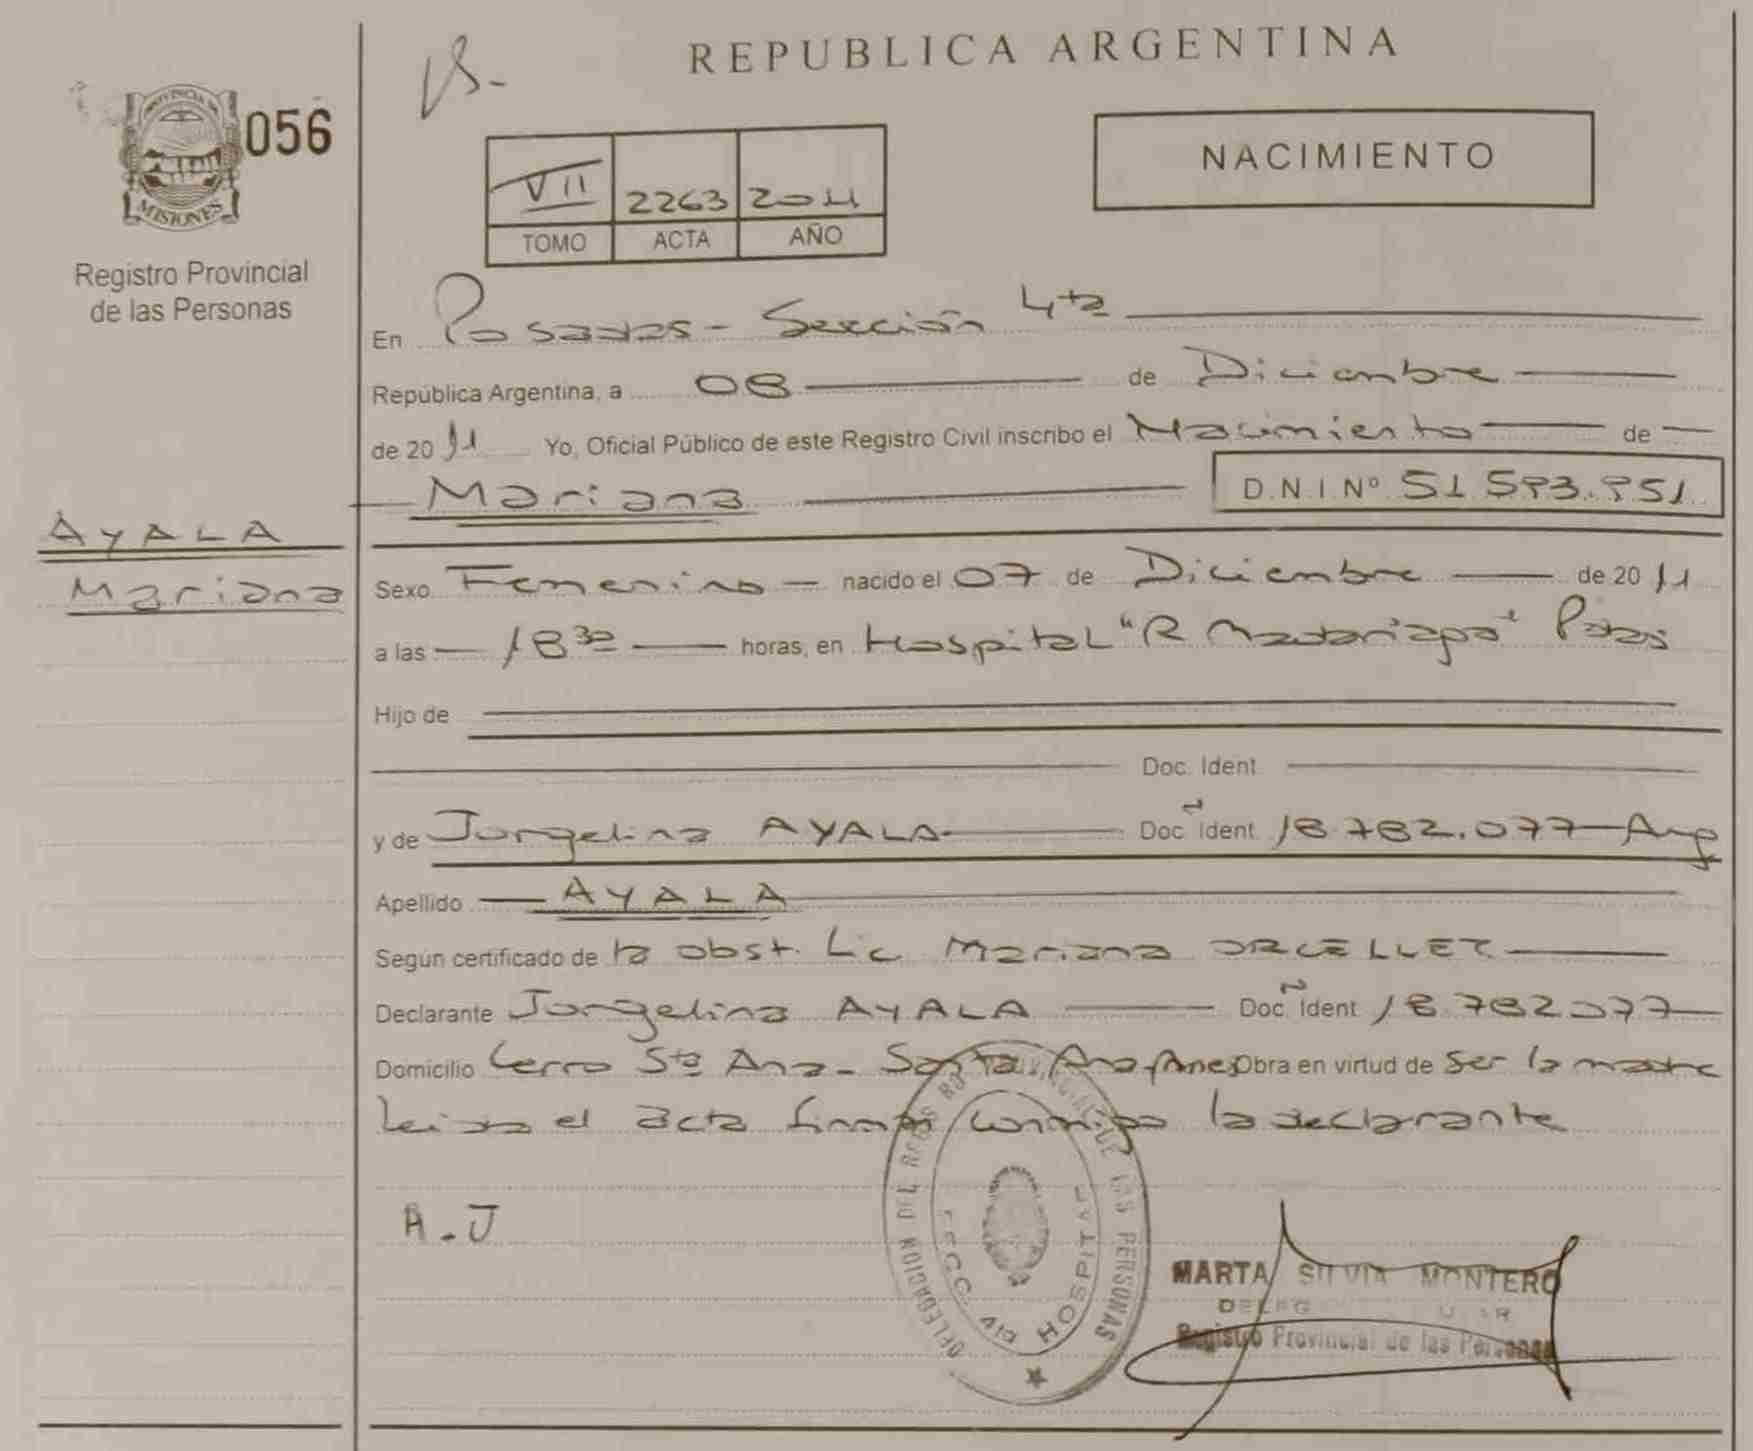 REPUBLICA ARGENTINA
PROVINCIA DE
MISIONES
056
Registro Provincial
de las Personas
NACIMIENTO
VII 2263 2011
TOMO ACTA AÑO
En Posadas - Sección 4ta
República Argentina, a 08 de Diciembre
de 2011 Yo, Oficial Público de este Registro Civil inscribo el Nacimiento de
Mariana D.N.I Nº 51 593.951
AYALA
Mariana
Sexo Femenino nacido el 07 de Diciembre de 2011
a las 18 30 horas, en Hospital "R Madariaga" Pdas
Hijo de
Doc. Ident
y de Jorgelina AYALA Doc Ident 18.782.077 Arg
Apellido AYALA
Según certificado de la obst. Lic Mariana ORCELLET
Declarante Jorgelina AYALA Doc Ident 18.782.077
Domicilio Cerro Sta Ana - Santa Ana Mnes Obra en virtud de ser la madre
leida el acta firma conmigo la declarante
A.J
DELEGACION DEL REGISTRO PROVINCIAL DE LAS PERSONAS
SECC. 4ta HOSPITAL
MARTA SILVIA MONTERO
Registro Provincial de las Personas